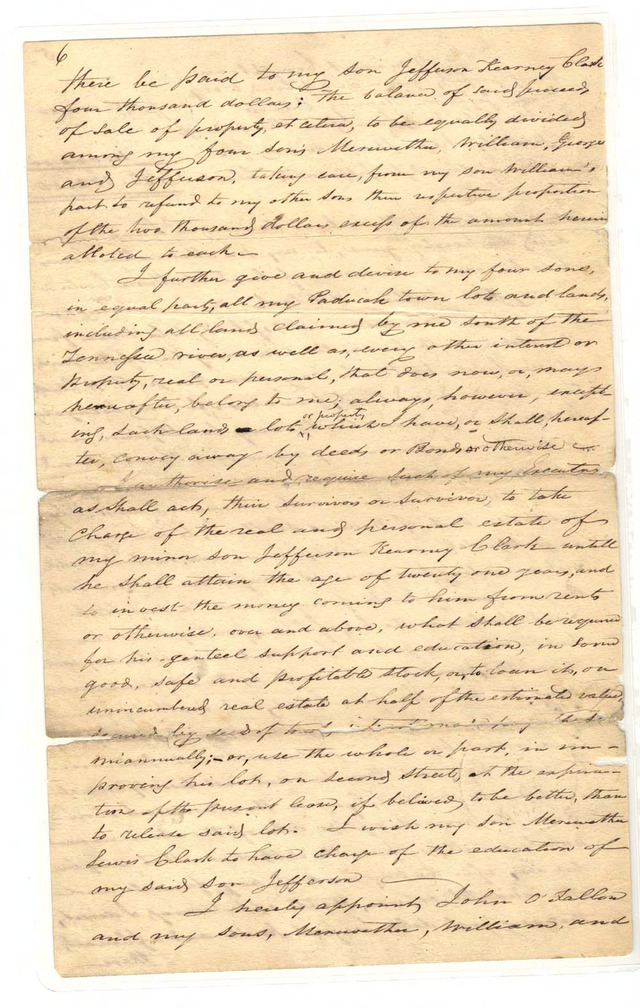 6
there be paid to my son Jefferson Kearney Clark
four thousand dollars; the balance of said proceeds
of sale of property, et cetera, to be equally divided
among my four sons Meriwether, William, George
and Jefferson, taking care, from my son William's
part to refund to my other sons their respective proportion
of the two thousand dollars excess of the amount herein
alloted to each.
I further give and devise to my four sons,
in equal parts, all my Paducah town lots and lands,
including all lands claimed by me south of the
Tennessee river, as well as, every other interest or
property, real or personal, that does now, or, may
hereafter, belong to me; always, however, except-
ing, such lands lots, or property which I have, or shall, hereaf-
ter, convey away by deeds or Bonds or otherwise
I authorise and require such of my Executors
as shall act, their survivors or survivor, to take
charge of the real and personal estate of
my minor son Jefferson Kearney Clark untill
he shall attain the age of twenty one years, and
to invest the money coming to him from rents
or otherwise, over and above, what shall be required
for his genteel support and education, in some
good, safe and profitable stock, or, to loan it, on
unincumbered real estate at half of the estimate value,
secured by deed of trust
miannually; or, use the whole or part, in im-
proving his lot, on second street, at the expira-
tion of the present lease, if believed to be better, than
to release said lot. I wish my son Meriwether
Lewis Clark to have charge of the education of
my said son Jefferson
I hereby appoint John O'Fallon
and my sons, Meriwether, William, and